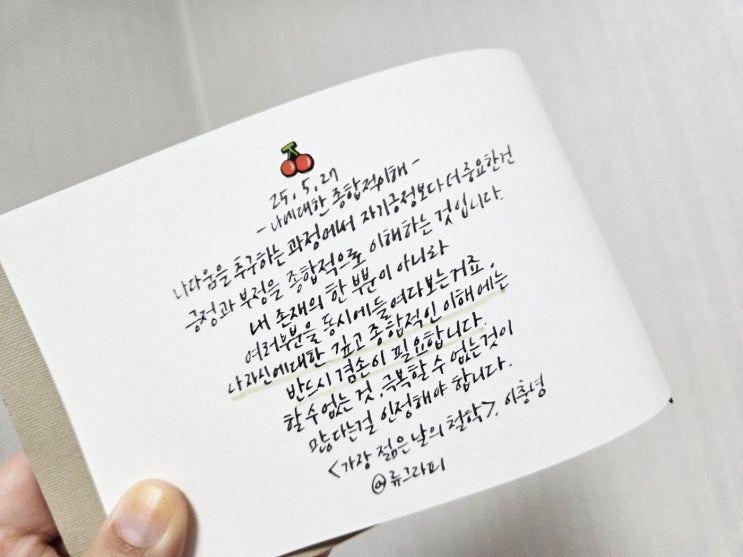 25.5.27
- 나에대한 종합적이해 -
나다움을 추구하는 과정에서 자기긍정보다 더 중요한건
긍정과 부정을 종합적으로 이해하는 것입니다.
내 존재의 한 부분이 아니라
여러부분을 동시에 들여다보는거죠.
나 자신에대한 깊고 종합적인 이해에는
반드시 겸손이 필요합니다.
할 수 없는 것, 극복할 수 없는것이
많다는걸 인정해야 합니다.
<가장 젊은 날의 철학>. 이충녕
@류그라피